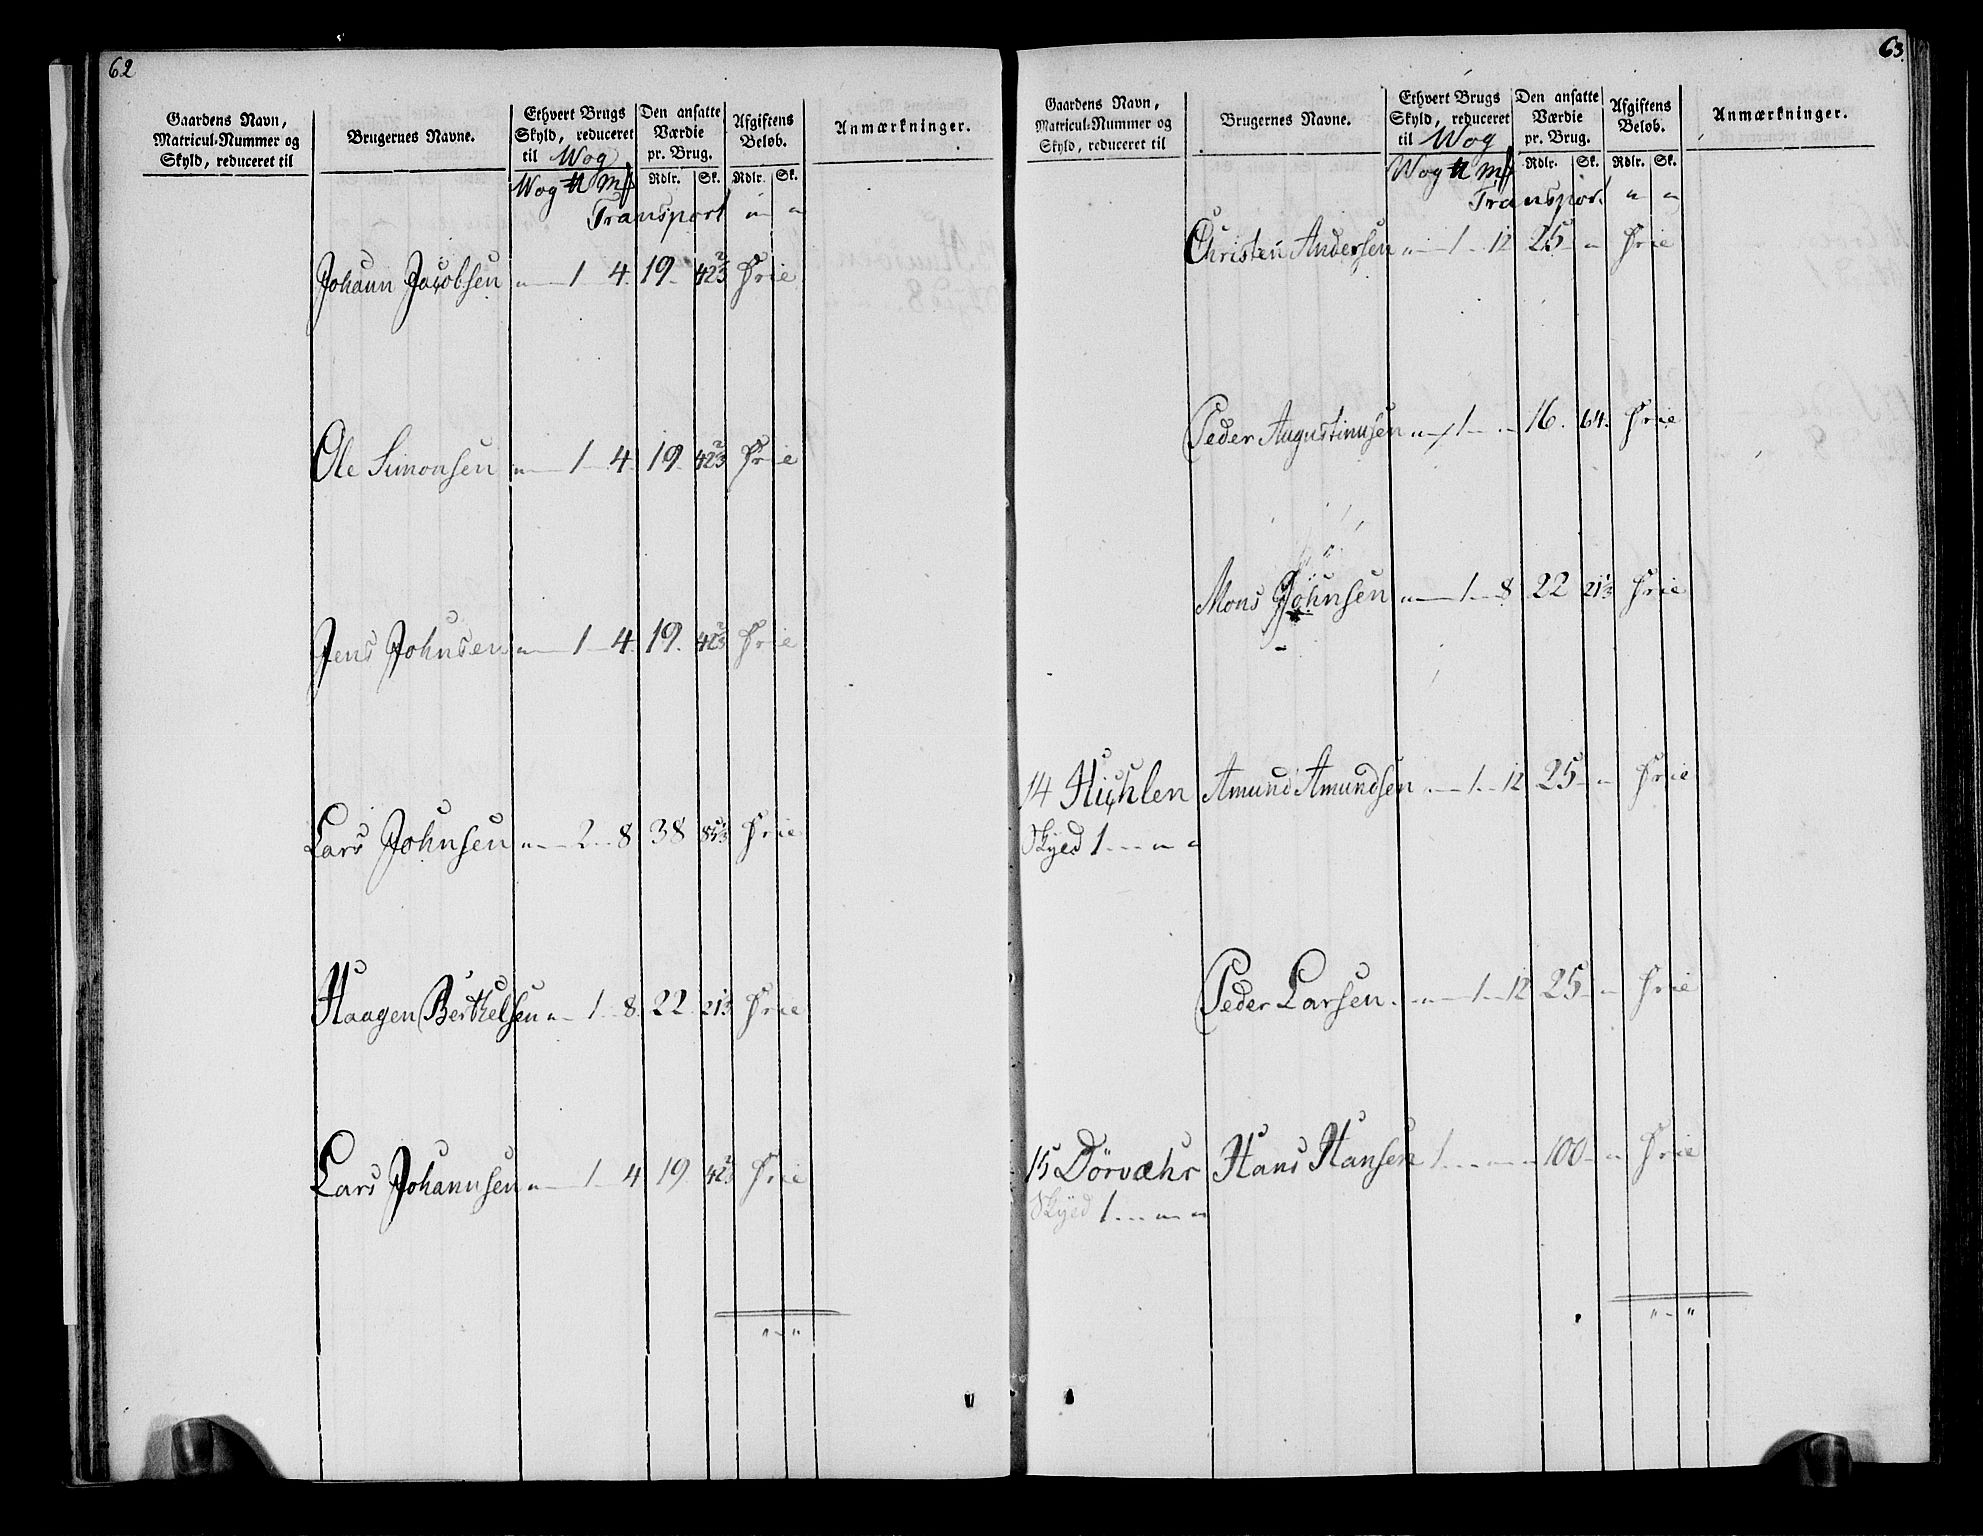 62
Gaardens Navn, Matricul-Nummer og Skyld, reduceret til
Brugernes Navne.
Ethvert Brugs Skyld, reduceret til Wog
Den ansatte Værdie pr. Brug.
Afgiftens Beløb.
Anmærkninger.
Wog ℔ mk Rdlr. Sk. Rdlr. Sk.
Transport " "
Johann Jacobsen " 1 4 19 42 2/3 Frie
Ole Simonsen " 1 4 19 42 2/3 Frie
Jens Johnsen " 1 4 19 42 2/3 Frie
Lars Johnsen " 2 8 38 85 1/3 Frie
Haagen Berthelsen " 1 8 22 21 1/3 Frie
Lars Johannsen " 1 4 19 42 2/3 Frie
" - "
63.
Gaardens Navn, Matricul-Nummer og Skyld, reduceret til
Brugernes Navne.
Ethvert Brugs Skyld, reduceret til Wog
Den ansatte Værdie pr. Brug.
Afgiftens Beløb.
Anmærkninger.
Wog ℔ mk Rdlr. Sk. Rdlr. Sk.
Transport " "
Christen Andersen " 1 12 25 " Frie
Peder Augustinusen " 1 " 16 64 Frie
Mons Johnsen " 1 8 22 21 1/3 Frie
14 Hiuhlen Amund Amundsen " 1 12 25 " Frie
Skyld 1 " "
Peder Larsen " 1 12 25 " Frie
15 Dörvæhr Hans Hansen 1 " " 100 " Frie
Skyld 1 " "
" - "